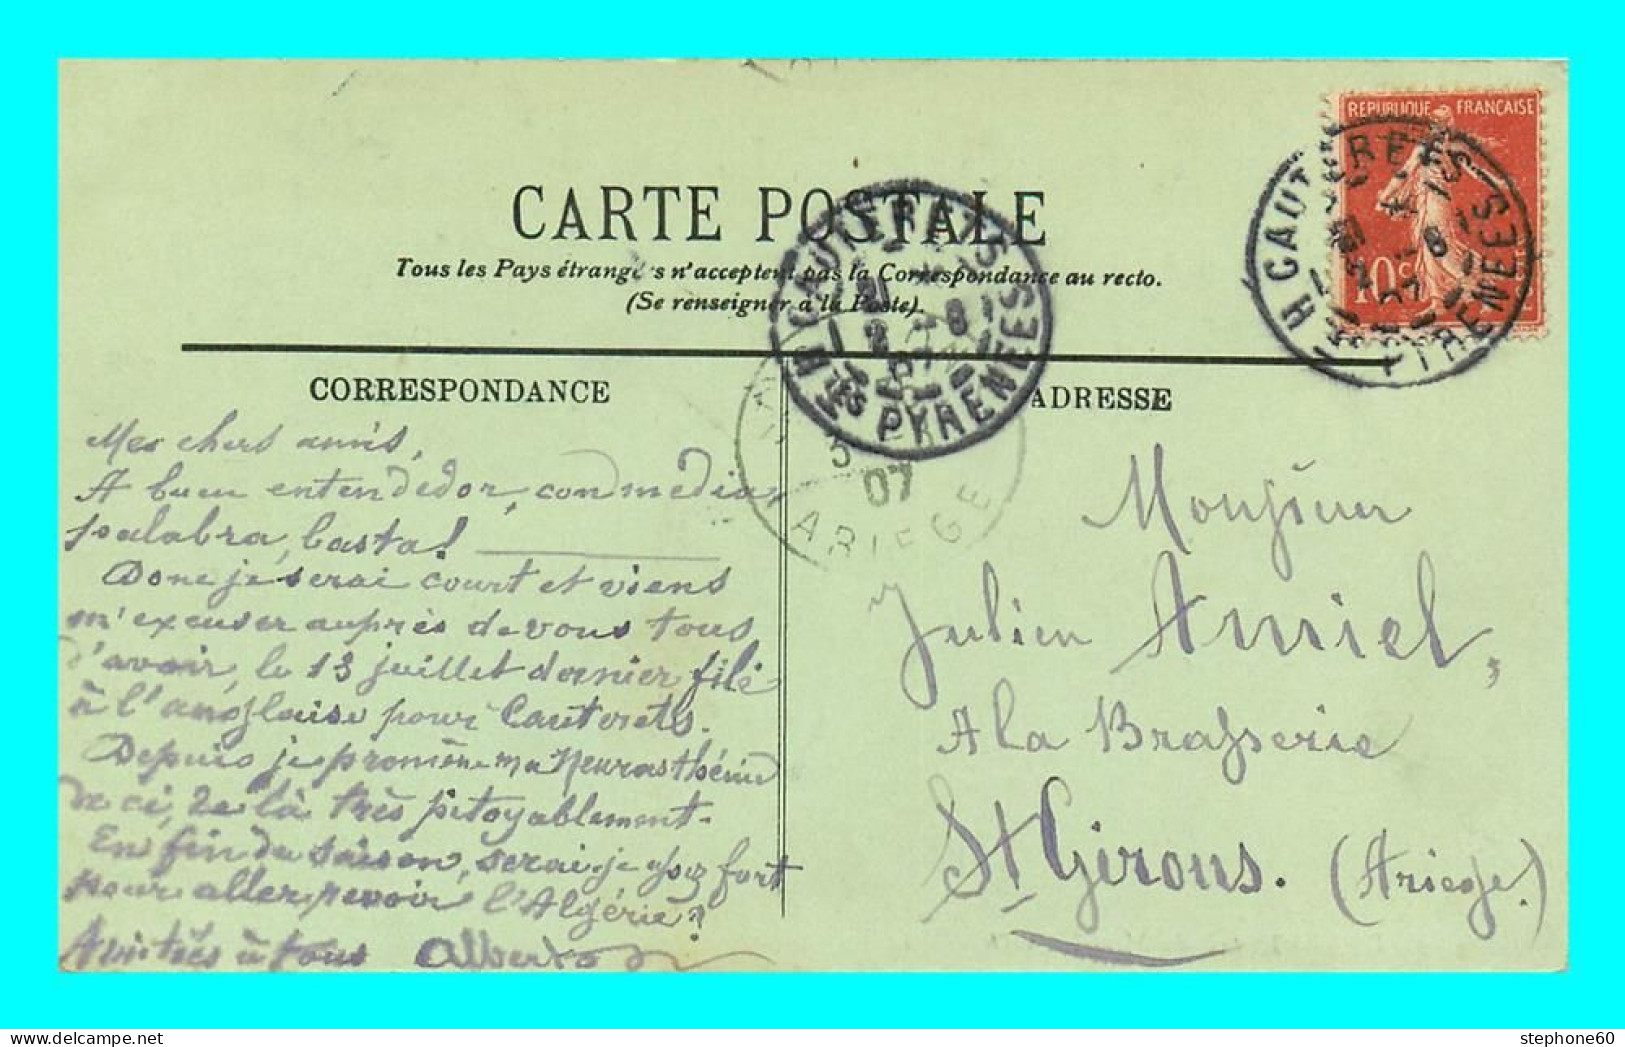 REPUBLIQUE FRANÇAISE
10c
CAUTERETS
HTES PYRENEES
CARTE POSTALE
Tous les Pays étrangers n'acceptent pas la Correspondance au recto.
(Se renseigner à la Poste).
CAUTERETS
2 -8
07
HTES PYRENEES
5
07
ARIEGE
CORRESPONDANCE
Mes chers amis,
A buen entendedor, con media
palabra, basta!
Donc je serai court et viens
m'excuser auprès de vous tous
d'avoir, le 13 juillet dernier filé
à l'anglaise pour Cauterets.
Depuis je promène ma Neurasthénie
de ci, de là très pitoyablement.
En fin de saison, serai-je assez fort
pour aller revoir l'Algérie?
Amitiés à tous Alberto
ADRESSE
Monsieur
Julien Amiel,
A la Brasserie
St Girons. (Ariege.)
stephone60